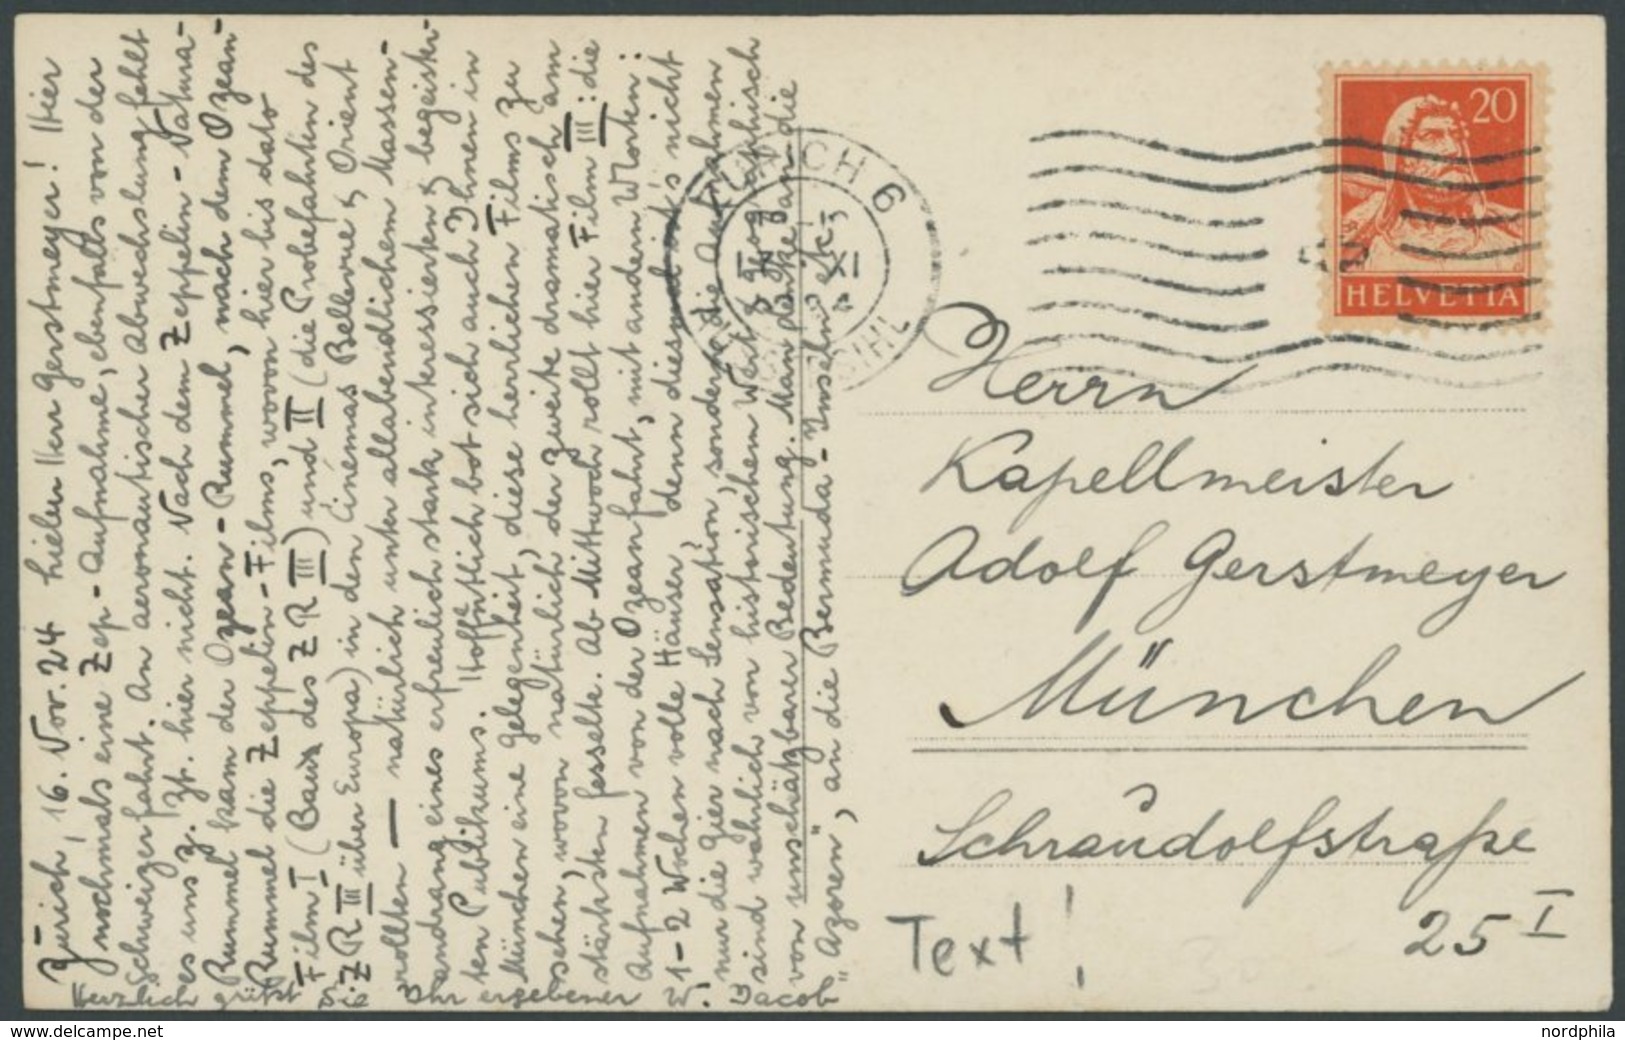 Zürich, 16. Nov. 24 Vielen Herr Gerstmeyer! Hier
nochmals eine Zep-Aufnahme, ebenfalls von der
Schweizerfahrt. An aeronautischer Abwechslung fehlt
es uns z. Zt. hier nicht. Nach dem Zeppelin-Natura-
Rummel kam der Ozean-Rummel, nach dem Ozean-
Rummel die Zeppelin-Films, wovon hier bis dato
Film I (Bau des ZR III) und II (die Probefahrten des
ZR III über Europa) in den Cinémas Bellevue & Orient
rollten — natürlich unter allabendlichem Massen-
andrang eines erfreulich stark interessierten & begeister-
ten Publikums. Hoffentlich bot sich auch Ihnen in
München eine Gelegenheit, diese herrlichen Films zu
sehen, wovon natürlich der zweite dramatisch am
stärksten fesselte. Ab Mittwoch rollt hier Film III: die
Aufnahmen von der Ozeanfahrt, mit andern Worten:
1-2 Wochen volle Häuser, denn diesmal ist's nicht
nur die Gier nach Sensation, sondern die Aufnahmen
sind wahrlich von historischem Wert & geographisch
von unschätzbarer Bedeutung. Man denke an die
"Azoren", an die Bermuda-Inseln etc.
Herzlich grüßt Sie Ihr ergebener W. Jacob
ZÜRICH 6
XI
SIHL
20
HELVETIA
Herrn
Kapellmeister
Adolf Gerstmeyer
München
Schraudolfstraße
25 I
Text!
www.delcampe.net
nordphila